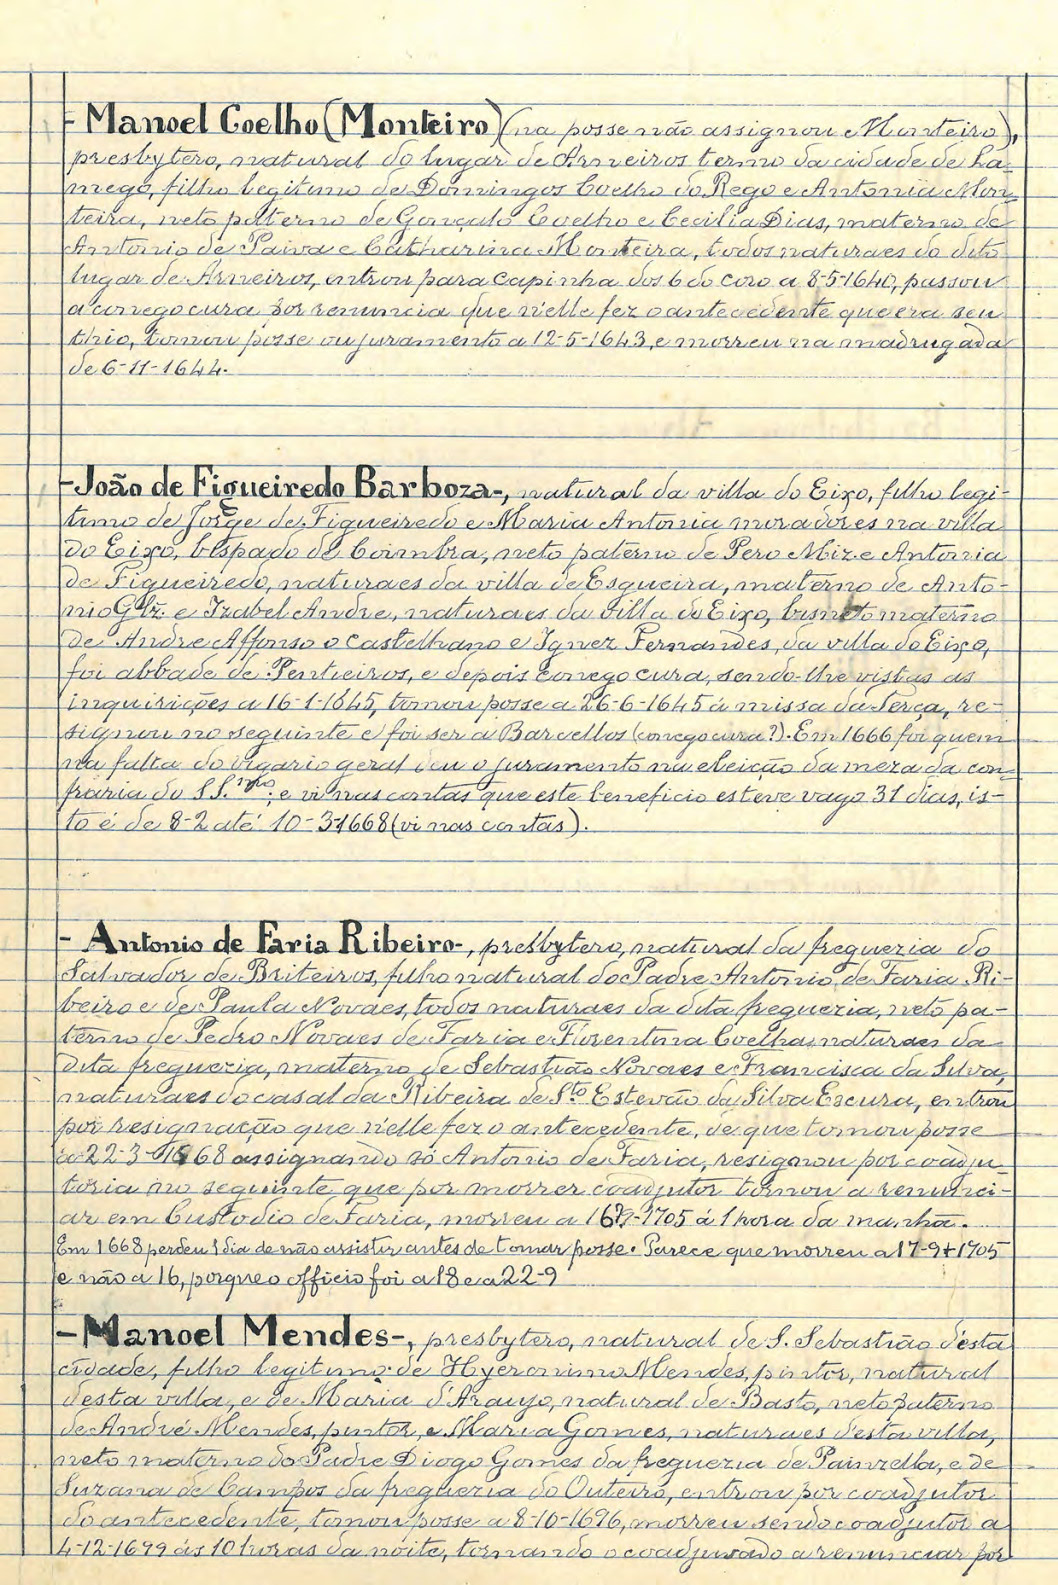 - Manoel Coelho (Monteiro) (na posse não assignou Monteiro),
presbytero, natural do lugar de Arneiros termo da cidade de La-
mego, filho legitimo de Domingos Coelho do Rego e Antonia Mon-
teira, neto paterno de Gonçalo Coelho e Cecilia Dias, materno de
Antonio de Paiva e Catharina Monteira, todos naturaes do dito
lugar de Arneiros, entrou para capinha dos 6 do coro a 8-5-1640, passou
a conego cura por renuncia que n'elle fez o antecedente que era seu
thio, tomou posse ou juramento a 12-5-1643, e morreu na madrugada
de 6-11-1644.
- João de Figueiredo Barboza-, natural da villa do Eixo, filho legi-
timo de Jorge de Figueiredo e Maria Antonia moradores na villa
do Eixo, bispado de Coimbra, neto paterno de Pero Miz. e Antonia
de Figueiredo, naturaes da villa de Esgueira, materno de Anto-
nio Glz. e Izabel Andre, naturaes da villa do Eixo, bisneto materno
de Andre Affonso o castelhano e Ignez Fernandes, da villa do Eixo,
foi abbade de Pentieiros, e depois conego cura, sendo-lhe vistas as
inquirições a 16-1-1645, tomou posse a 26-6-1645 á missa da Terça, re-
signou no seguinte e foi ser a Barcellos (conego cura?). Em 1666 foi quem
na falta do vigario geral deu o juramento na eleição da meza da con-
fraria do SS.mo; e vi nas contas que este beneficio esteve vago 31 dias, is-
to é de 8-2 até 10-3-1668 (vi nas contas).
- Antonio de Faria Ribeiro-, presbytero, natural da freguezia do
Salvador de Briteiros, filho natural do Padre Antonio de Faria Ri-
beiro e de Paula Novaes, todos naturaes da dita freguezia, neto pa-
terno de Pedro Novaes de Faria e Florentina Coelha, naturaes da
dita freguezia, materno de Sebastião Novaes e Francisca da Silva,
naturaes do casal da Ribeira de Sto Estevão da Silva Escura, entrou
por resignação que n'elle fez o antecedente, de que tomou posse
a 22-3-1668 assignando só Antonio de Faria, resignou por coadju-
toria no seguinte, que por morrer coadjutor tornou a renunci-
ar em Custodio de Faria, morreu a 16-9-1705 á 1 hora da manhã.
Em 1668 perdeu 1 dia de não assistir antes de tomar posse. Parece que morreu a 17-9-1705
e não a 16, porque o officio foi a 18 e a 22-9
- Manoel Mendes-, presbytero, natural de S. Sebastião d'esta
cidade, filho legitimo de Hyeronimo Mendes, pintor, natural
desta villa, e de Maria d'Araujo, natural de Basto, neto paterno
de André Mendes, pintor, e Maria Gomes, naturaes d'esta villa,
neto materno do Padre Diogo Gomes da freguezia de Painzella, e de
Suzana de Campos da freguezia do Outeiro, entrou por coadjutor
do antecedente, tomou posse a 8-10-1696, morreu sendo coadjutor a
4-12-1699 ás 10 horas da noite, tornando o coadjuvado a renunciar por